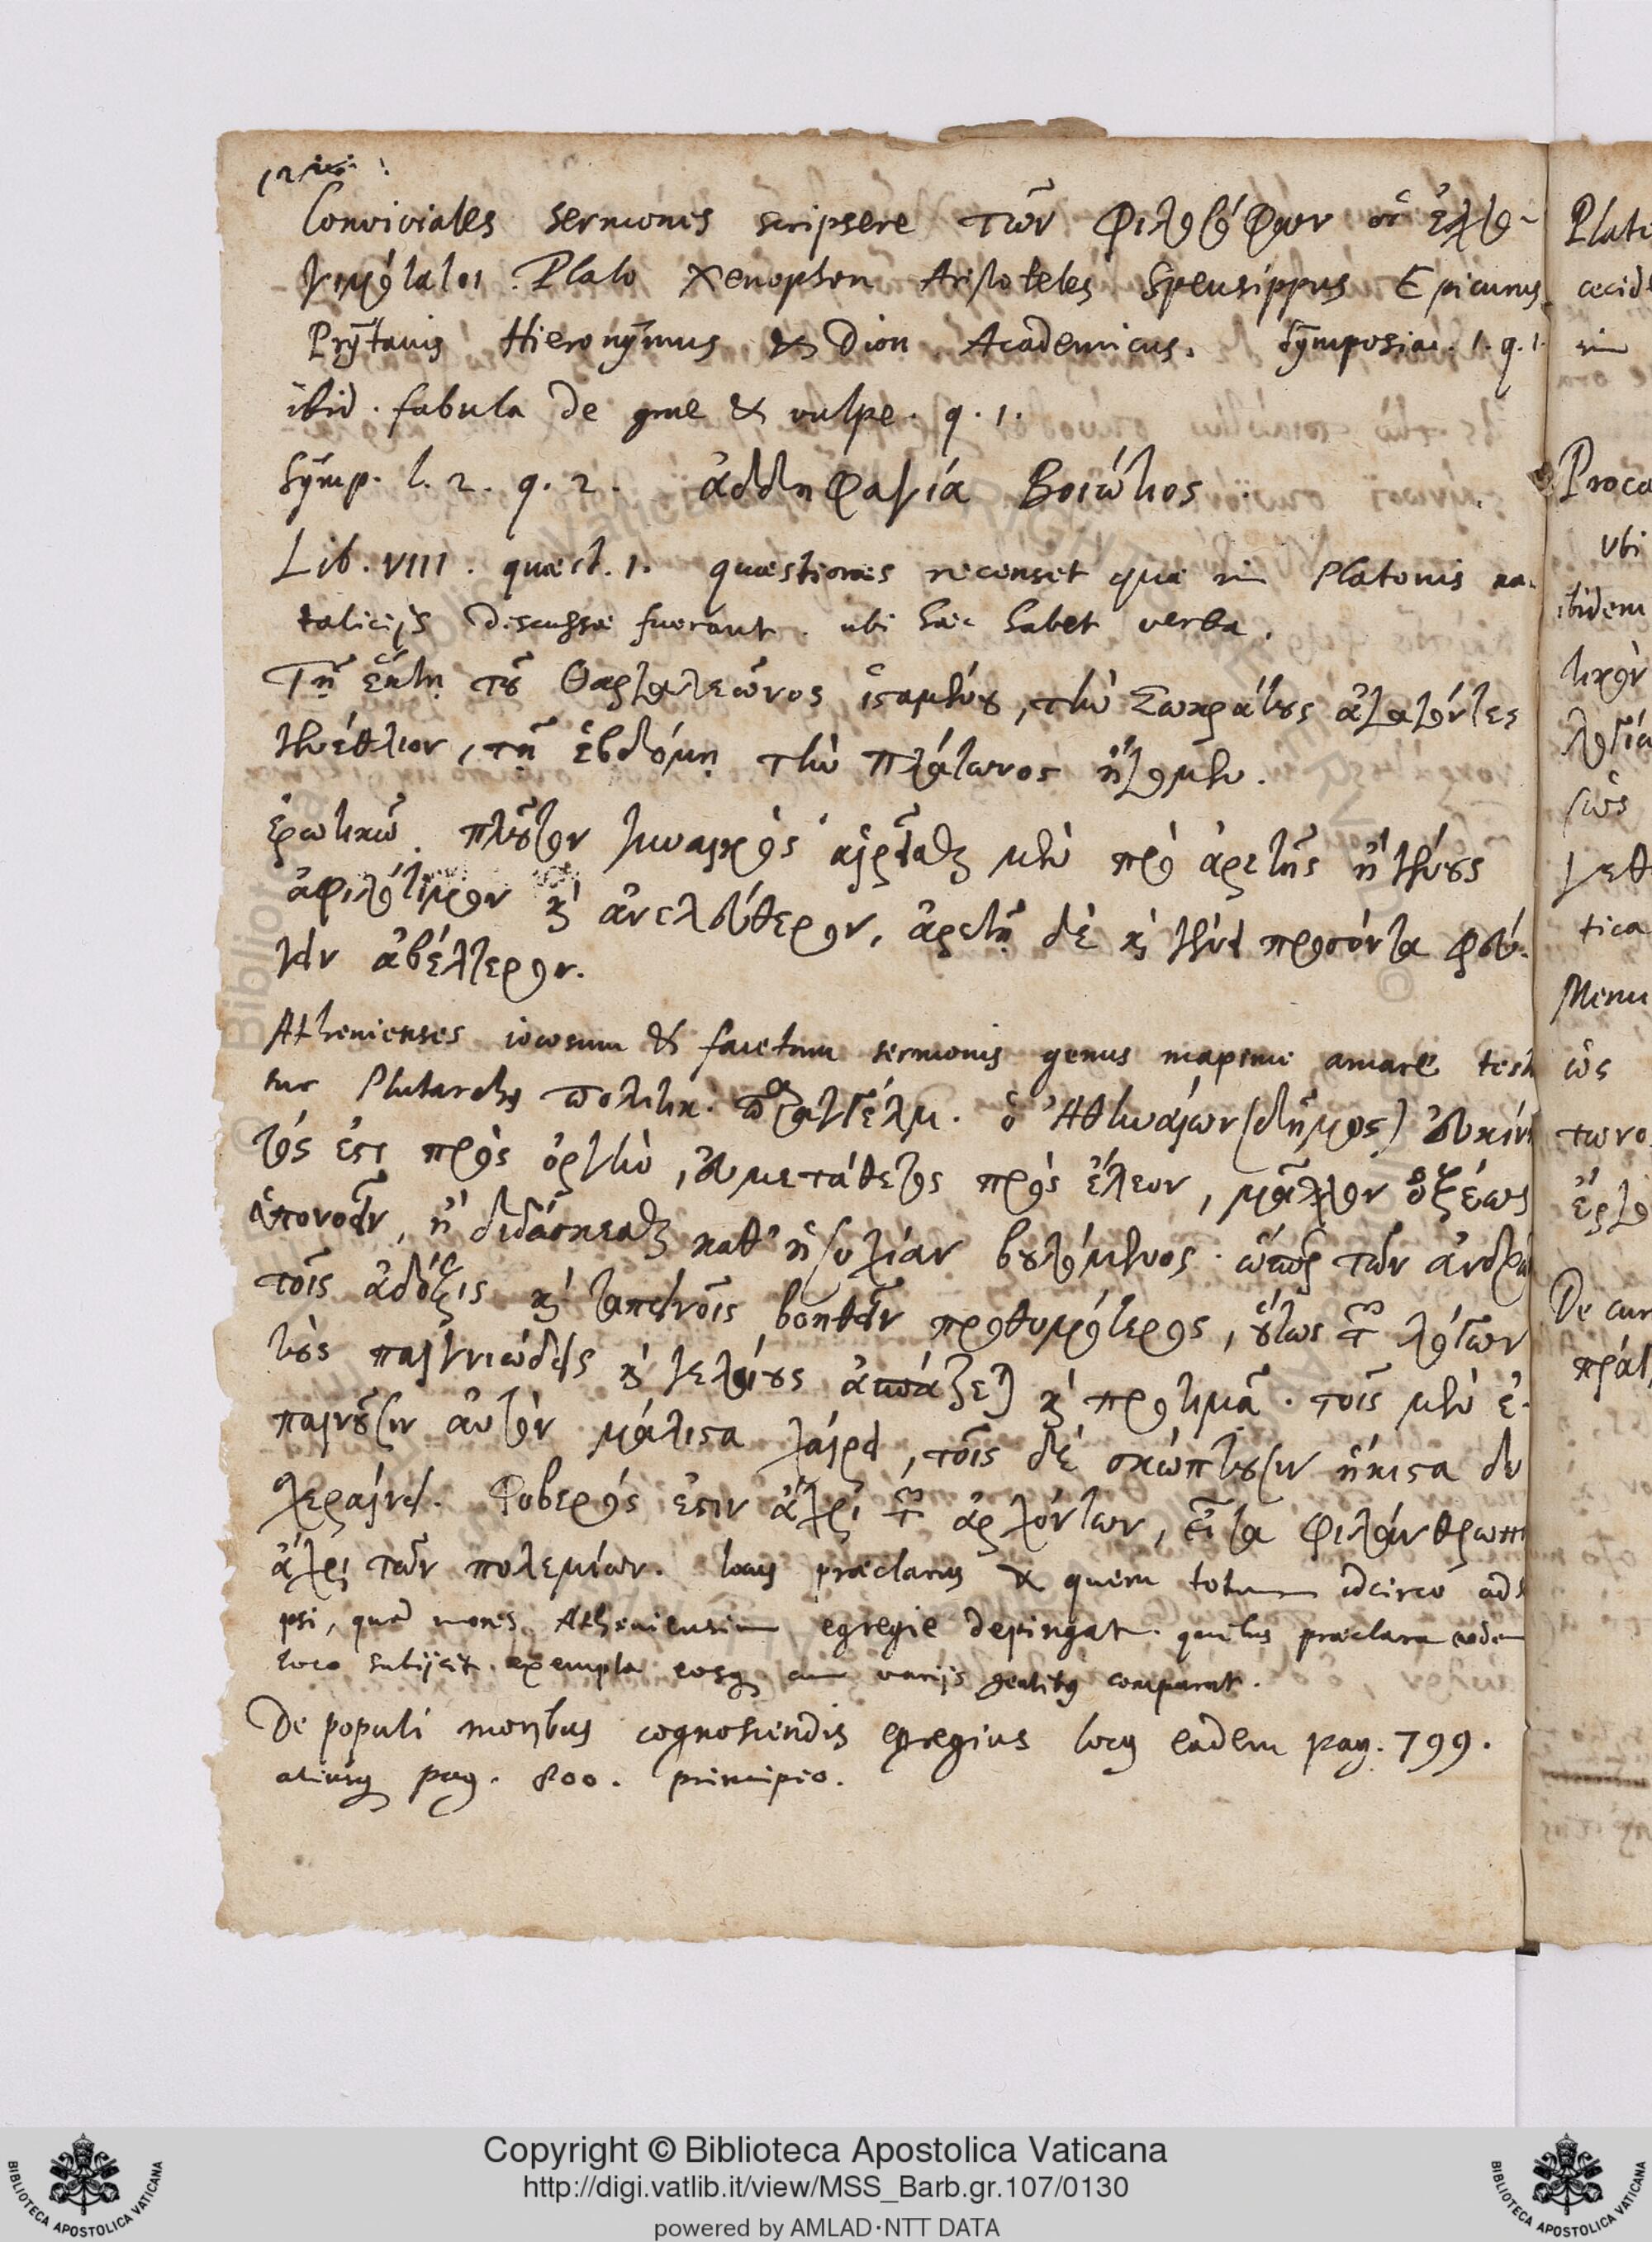 Conviviales sermones scripsere τῶν φιλοσόφων οἱ ἐλλο-
γιμώτατοι. Plato Xenophon Aristoteles Speusippus Epicurus
Prytanis Hieronymus & Dion Academicus. Symposiac. 1. q. 1.
ibid. fabula de grue & vulpe. q. 1.
Symp. l. 2. q. 2. ἀδδηφαγία Βοιώτιος
Lib. VIII. quæst. 1. quæstiones recenset quæ in Platonis na-
talicijs discussæ fuerant. ubi hæc habet verba.
Τῇ ἕκτῃ τοῦ Θαργηλιεῶνος ἱσταμένου, τὴν Σωκράτους ἀγαγόντες
γενέθλιον, τῇ ἑβδόμῃ τὴν Πλάτωνος ἤγομεν.
ἐρωτικῶ. πλοῦτον γυναικὸς αἱρεῖσθαι μὲν πρὸ ἀρετῆς ἢ γένους
ἀφιλότιμον καὶ ἀνελεύθερον, ἀρετῇ δὲ καὶ γένει προσόντα φεύ-
γειν ἀβέλτερον.
Athenienses iocosum & facetum sermonis genus maxime amare test
tur Plutarchus πολιτικ. παραγγέλμ. ὁ Ἀθηναίων (δῆμος) εὐκίνη
τός ἐστι πρὸς ὀργὴν, εὐμετάθετος πρὸς ἔλεον, μᾶλλον ὀξέως
ὑπονοεῖν, ἢ διδάσκεσθαι καθ' ἡσυχίαν βουλόμενος. ὥσπερ τῶν ἀνδρῶ
τοῖς ἀδόξοις καὶ ταπεινοῖς βοηθεῖν προθυμότερος, οὕτως τῶν λόγων
τοὺς παιγνιώδεις καὶ γελοίους ἀσπάζεται καὶ προτιμᾷ. τοῖς μὲν ἐ-
παινοῦσιν αὐτὸν μάλιστα χαίρει, τοῖς δὲ σκώπτουσιν ἥκιστα δυ
χεραίνει. φοβερός ἐστιν ἄχρι τῶν ἀρχόντων, εἶτα φιλάνθρωπο
ἄχρι τῶν πολεμίων. locus præclarus & quem totum idcirco ads
psi, quod mores Atheniensium egregie depingat. quibus præclara eodem
loco subijcit exempla eosque cum varijs gentibus comparat.
De populi moribus cognoscendis egregius locus eadem pag. 799.
aliusq pag. 800. principio.
Plato
cecid
in
Proca
Vbi
ibidem
τικὸν
γεθ
tica
Menu
ὡς
De cur
Copyright © Biblioteca Apostolica Vaticana
http://digi.vatlib.it/view/MSS_Barb.gr.107/0130
powered by AMLAD·NTT DATA
BIBLIOTECA APOSTOLICA VATICANA
BIBLIOTECA APOSTOLICA VATICANA